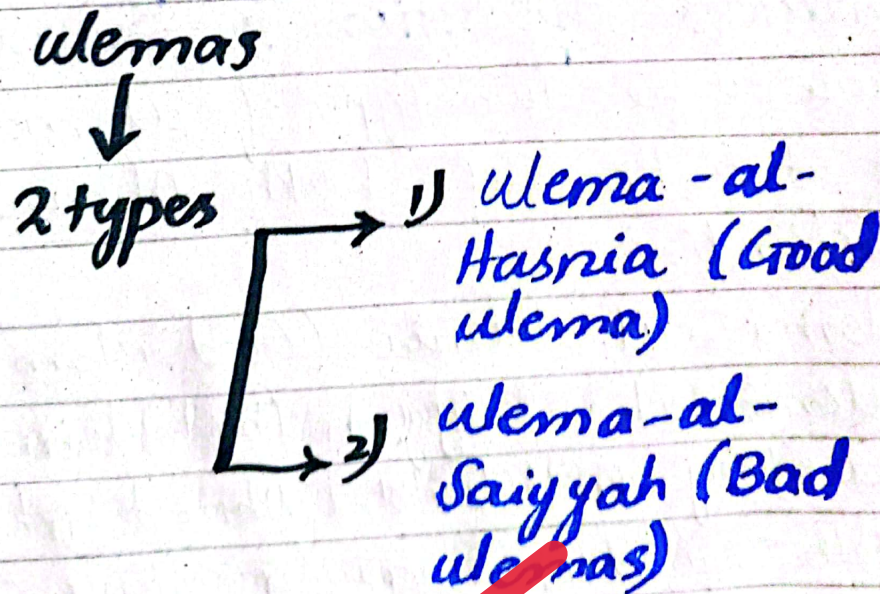 ulemas
2 types
1) Ulema-al-
Hasnia (Good
ulema)
2) ulema-al-
Saiyyah (Bad
ulemas)